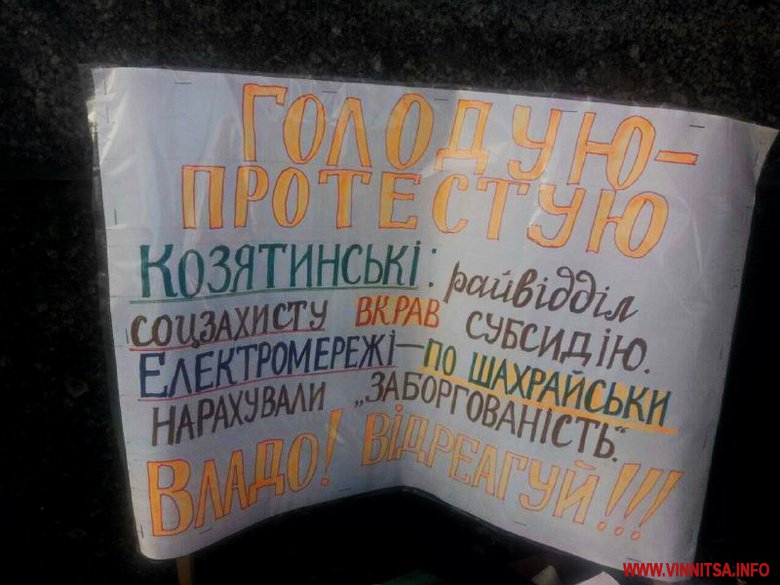 ГОЛОДУЮ-
ПРОТЕСТУЮ
КОЗЯТИНСЬКІ: райвідділ
СОЦЗАХИСТУ ВКРАВ СУБСИДІЮ.
ЕЛЕКТРОМЕРЕЖІ—ПО ШАХРАЙСЬКИ
НАРАХУВАЛИ „ЗАБОРГОВАНІСТЬ“.
ВЛАДО! ВІДРЕАГУЙ!!!
WWW.VINNITSA.INFO